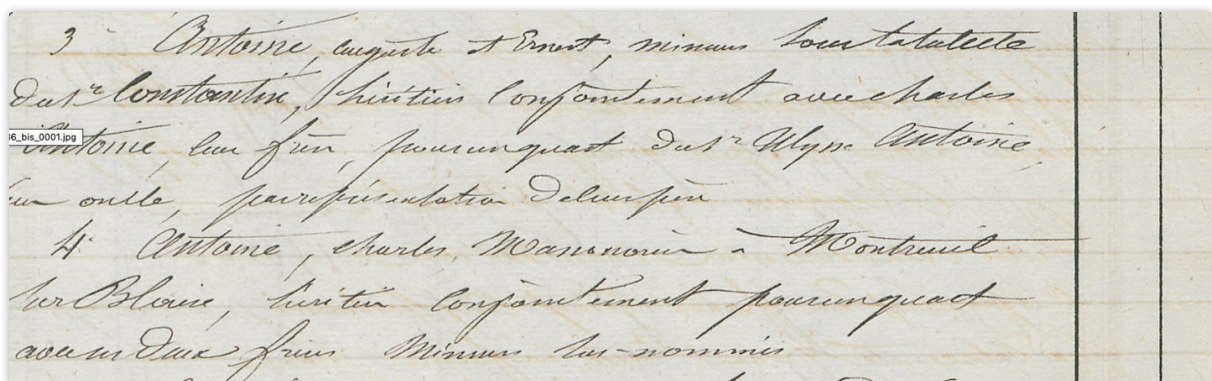 3° Antoine, auguste et Ernest, mineurs sous la tutelle
du sr Constantin, héritiers conjointement avec charles
Antoine, leur frère, pour un quart du sr Ulysse Antoine,
leur oncle, par représentation de leur père
4° Antoine, charles, Manoeuvre à Montreuil
sur Blaise, héritier conjointement pour un quart
avec ses deux frères Mineurs sus-nommés
16_bis_0001.jpg